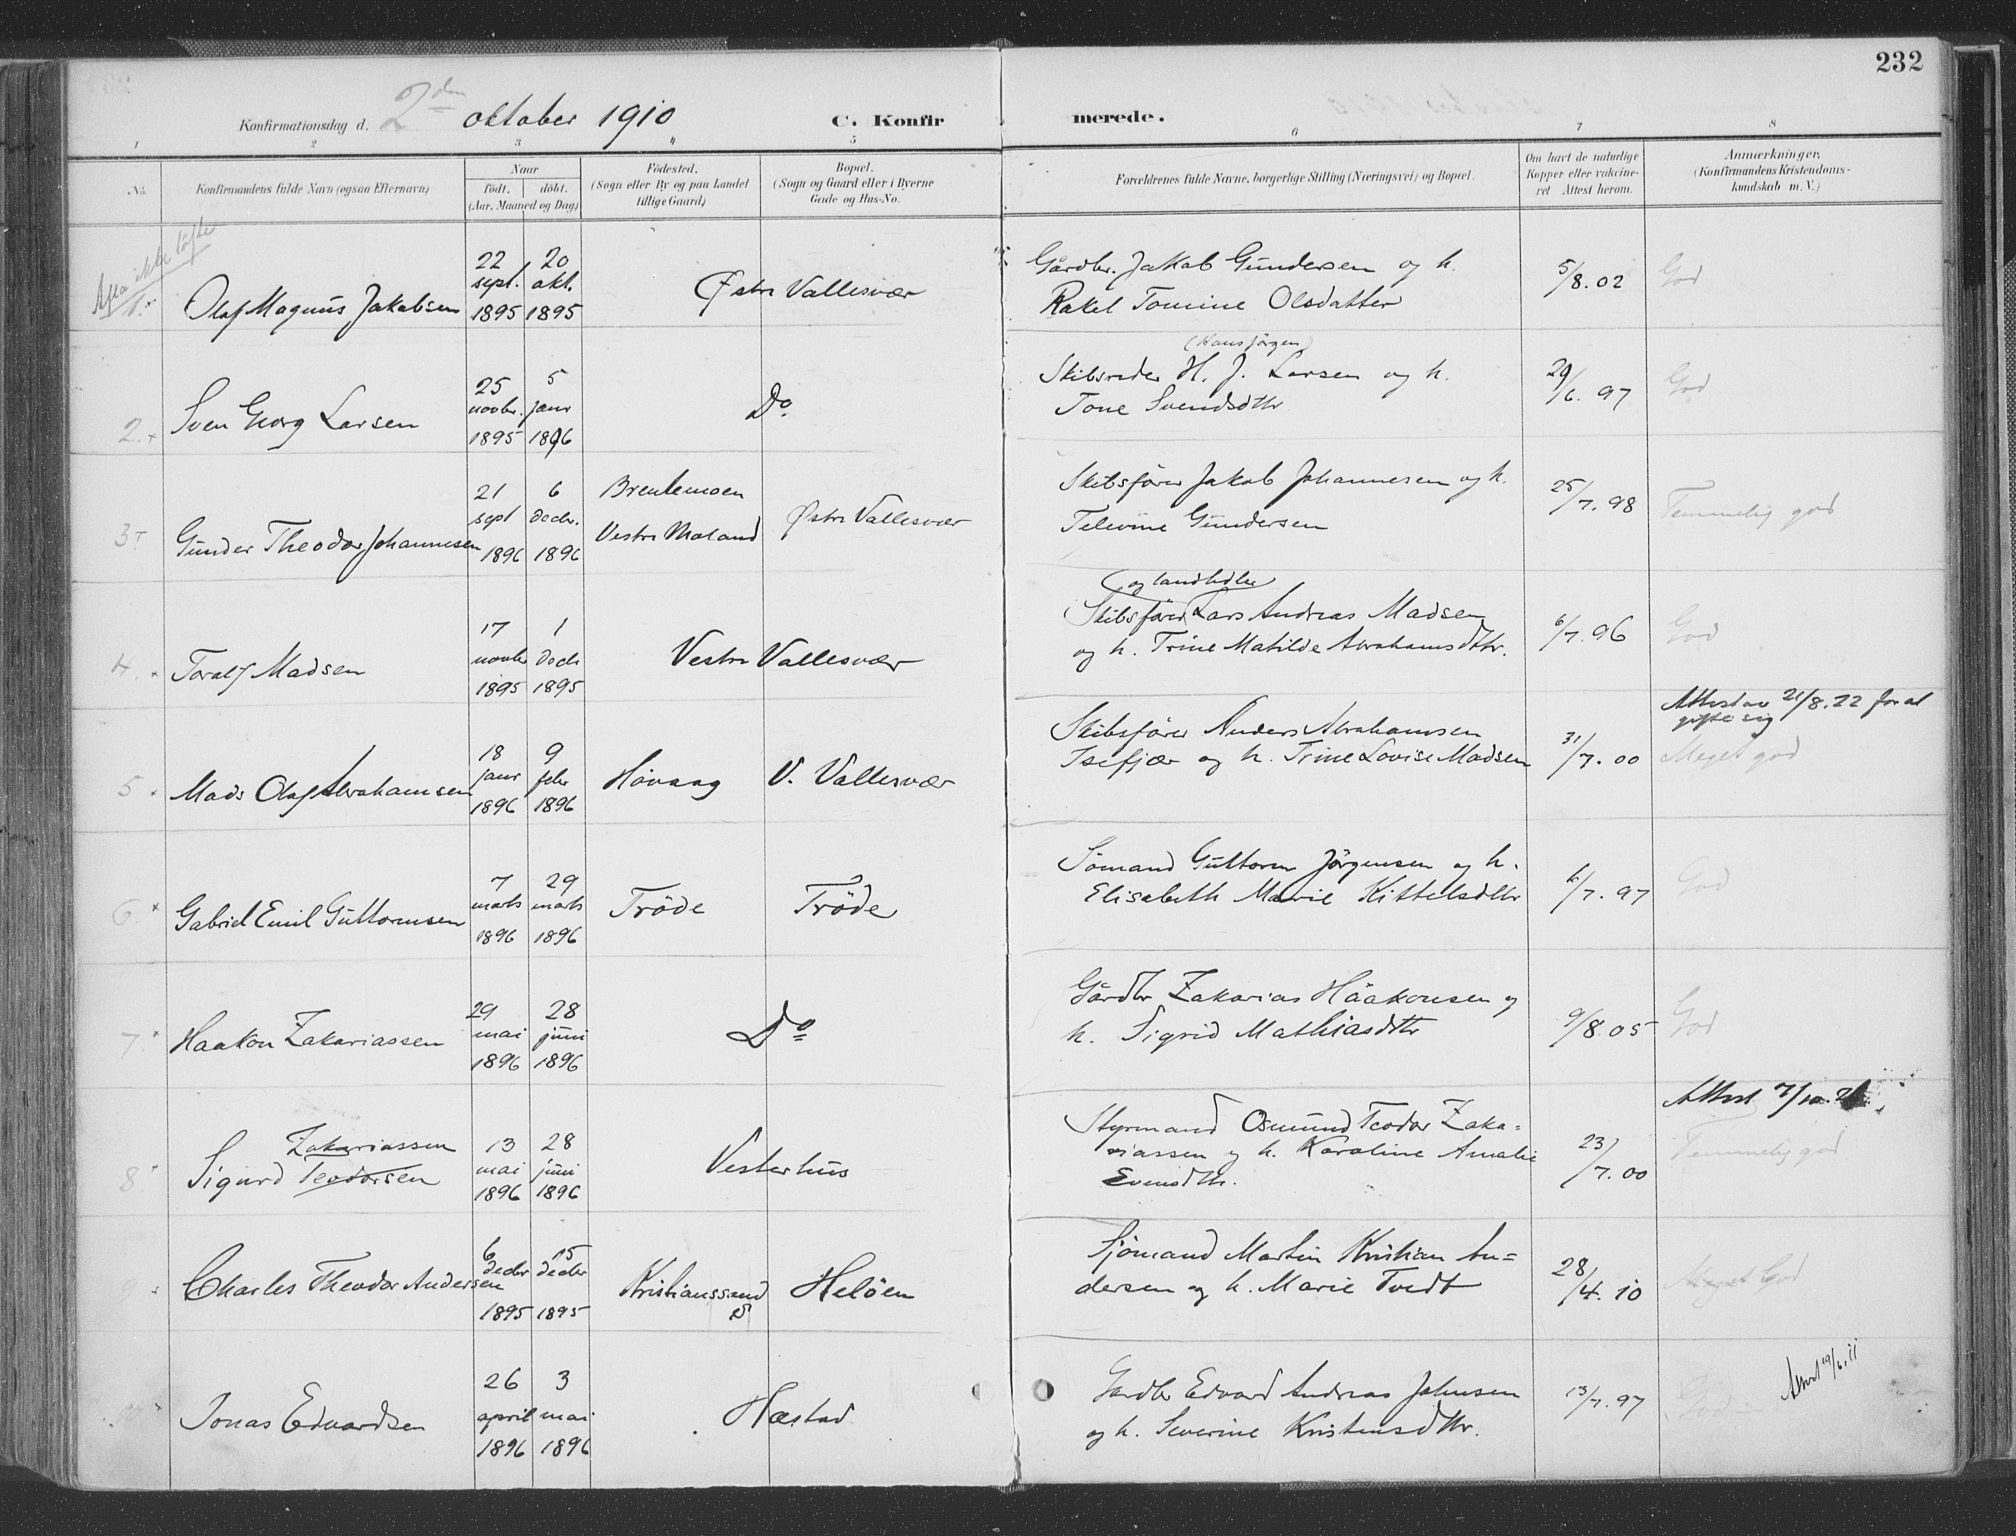 232
Konfirmationsdag d. 2den oktober 1910 C. Konfirmerede.
1 2 3 4 5 6 7 8
No. Konfirmandens fulde Navn (ogsaa Efternavn) Naar födt. döbt. (Aar, Maaned og Dag) Födested. (Sogn eller By og paa Landet tillige Gaard) Bopæl. (Sogn og Gaard eller i Byerne Gade og Hus-No. Forældrenes fulde Navne, borgerlige Stilling (Næringsvei) og Bopæl. Om havt de naturlige Kopper eller vakcineret Attest herom. Anmærkninger. (Konfirmandens Kristendomskundskab m. V.)
Afla ikke löfte
1. Olaf Magnus Jakobsen 22 sept. 1895 20 okt. 1895 Östre Vallesvær Gårdbr. Jakob Gundersen og h. Rakel Tomine Olsdatter 5/8.02 God
2. Sven Georg Larsen 25 novbr. 1895 5 janr 1896 Do Skibsreder H. J. (Hans Jörgen) Larsen og h. Tone Svendsdtr 29/6.97 God
3. Gunder Theodor Johannesen 21 sept 1896 6 decbr. 1896 Brentemoen Vestre Moland Östre Vallesvær Skibsförer Jakob Johannesen og h. Televine Gundersen 25/7.98 Temmelig god
4. Toralf Madsen 17 novbr 1895 1 decbr 1895 Vestre Vallesvær Skibsförer og landhdlr Lars Andreas Madsen og h. Trine Matilde Abrahamsdtr. 6/7.96 God
5. Mads Olaf Abrahamsen 18 janr 1896 9 febr 1896 Hövaag V. Vallesvær Skibsförer Anders Abrahamsen Isefjær og h. Trine Lovise Madsen 31/7.00 Attest av 21/8.22 for at gifte sig Meget god
6. Gabriel Emil Guttormsen 7 marts 1896 29 marts 1896 Tröde Tröde Sömand Guttorm Jörgensen og h. Elisabeth Marie Kittelsdtr 6/7.97 God
7. Haakon Zakariassen 29 mai 1896 28 juni 1896 Do Gårdbr Zakarias Håakonsen og h. Sigrid Mathiasdtr 9/8.05 God
8. Sigurd Teodorsen Zakariassen 13 mai 1896 28 juni 1896 Vesterhus Styrmand Osmund Teodor Zakariassen og h. Karoline Amalie Evensdtr. 23/7.00 Attest 7/10. Temmelig god
9. Charles Theodor Andersen 6 decbr 1895 15 decbr 1895 Kristianssand S Helöen Sjömand Martin Kristian Andersen og h. Marie Tvedt 28/4.10 Meget God
Jonas Edvardsen 26 april 1896 3 mai 1896 Hæstad Gardbr Edvard Andreas Johnsen og h. Severine Kristensdtr. 13/7.97 God Attest 19/6.11